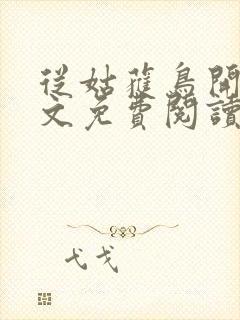 從姑獲鳥開
文免費閱讀
弋戈